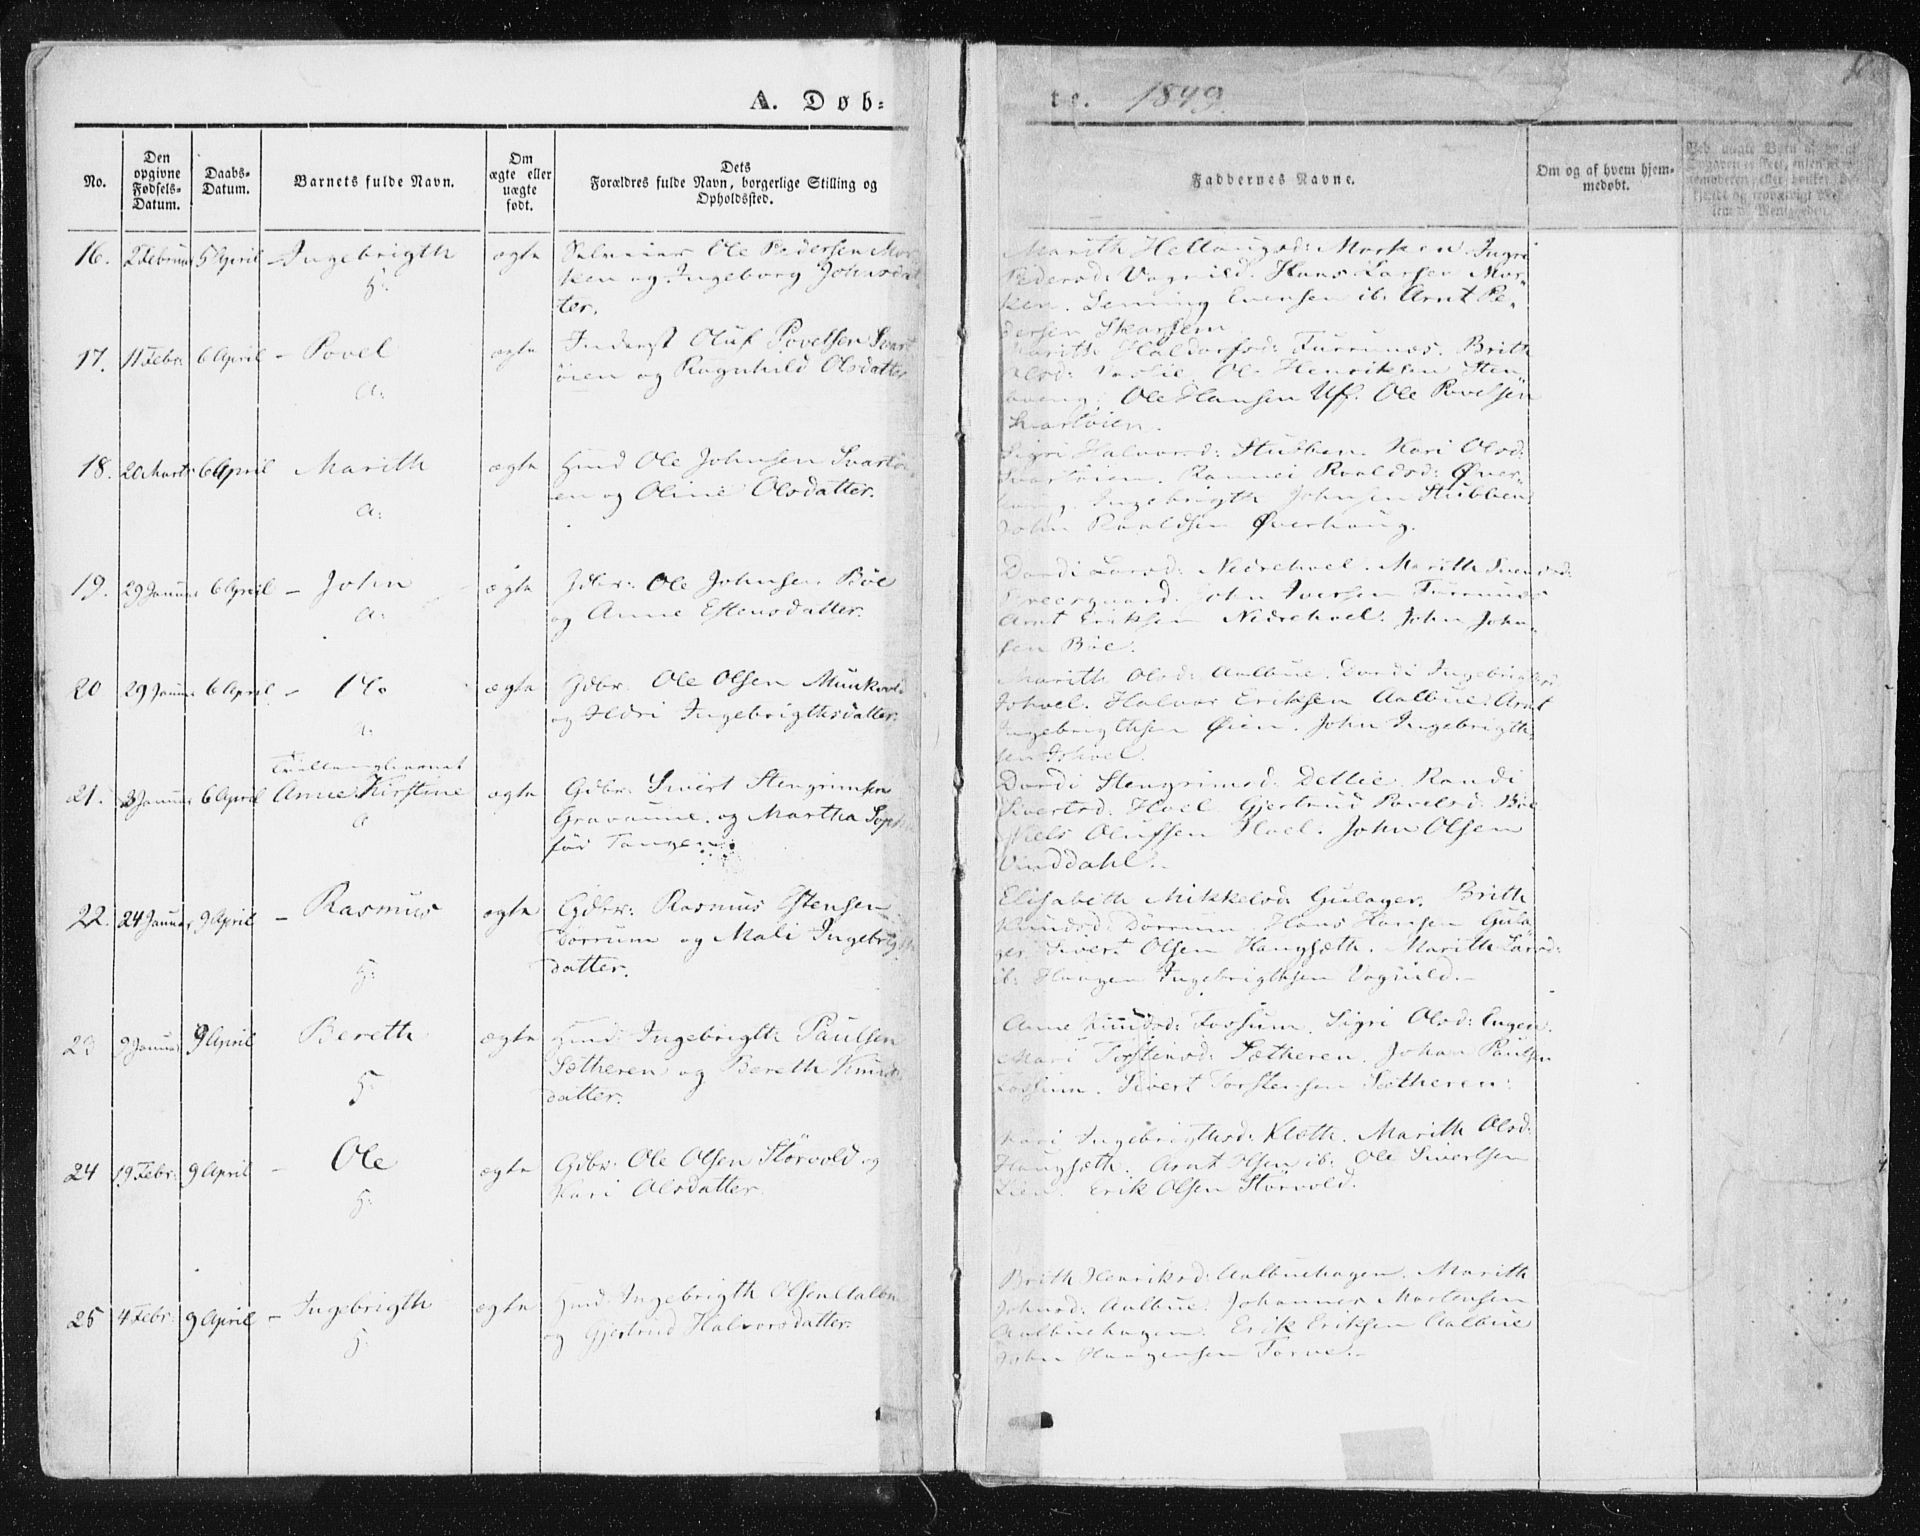 A. Døb=
te. 1849.
No.
Den opgivne Fødsels-Datum.
Daabs-Datum.
Barnets fulde Navn.
Om ægte eller uægte født.
Dets Forældres fulde Navn, borgerlige Stilling og Opholdssted.
Faddernes Navne.
Om og af hvem hjemmedøbt.
16. 2 Februar 5 April Ingebrigth ægte Ole Pedersen Mor-
ken og Ingeborg Johnsdat-
ter.
Marith Hellangsd: Morken. Ingri
Pedersd: Vognild. Hans Larsen Mor-
ken. Evensen ib: Arnt Pe-
dersen Skarsem
17. 11 Febr 6 April - Povel ægte Inderst Oluf Povelsen Svart
öien og Ragnhild Olsdatter
a:
Marith Haldorsd: Furrunæs. Brith
Olsd: Ole Henriksen Sten-
Ole Hansen Uf. Ole Povelsen
Svartöien.
18. 20 Marts 6 April Marith ægte Hmd Ole Johnsen Svartöi-
en og Oline Olsdatter.
a:
Sigri Halvorsd: Stubben. Kari Olsd:
Svartöien. Rannei Roaldsd: Øver-
haug. Ingebrigth Johnsen Stubben
John Roaldsen Øverhaug.
19. 29 Januar 6 April - John ægte Gdbr: Ole Johnsen Böe
og Anne Estensdatter.
a:
Dordi Larsd: Nedrehoel. Marith Svensd:
John Iversen Furrunæs
Arnt Eriksen Nedrehoel. John John-
sen Böe.
20 29 Januar 6 April - ægte Gdbr. Ole Olsen Munkvold
og Ildri Ingebrigthsdatter.
Marith Olsd: Aalbue. Dordi Ingebrigtsd
Ishoel. Halvor Eriksen Aalbue. Arnt
Ingebrigthsen Øien. John Ingebrigth-
sen Ishoel.
Tvillingbarnet
21. 3 Januar 6 April Anne Kirstine ægte Gdbr: Sivert Stengrimsen
Gravaune. og Martha
Tangen.
Dordi Stengrimsd: Detlie. Randi
Sivertsd: Hoel. Gjertrud Povelsd: Böe
Niels Olufsen Hoel. John Olsen
Vinddahl.
22. 24 Januar 9 April - Rasmus ægte Gdbr: Rasmus Estensen
Dörrum og Mali Ingebrigths
datter.
Elisabeth Mikkelsd: Gulager. Brith
Knudsd: Dörrum Hans Hansen Gula-
ger Sivert Olsen Haugsæth. Marith Larsd:
ib: Haagen Ingebrigthsen Vognild.-
23 9 Januar 9 April Bereth ægte Hmd. Ingebrigth Paulsen
Sætheren og Bereth Knuds
datter.
Anne Knudsd: Fossum. Sigri Olsd: Engen.
Mari Torstensd: Sætheren. Johan Paulsen
Fossum. Sivert Torstensen Sætheren.
24 19 Febr: 9 April - Ole ægte Gdbr: Ole Olsen Störvold og
Kari Olsdatter.
Kari Ingebrigthsd: Klæth. Marith Olsd:
Haugsæth. Arnt Olsen ib: Ole Sivertsen
Lien. Erik Olsen Störvold.
25 4 Febr. 9 April - Ingebrigth ægte Hmd. Ingebrigth Olsen Aalbue
og Gjertrud Halvorsdatter.
Brith Henriksd: Aalbuehagen. Marith
Johnsd: Aalbue. Johannes Mortensen
Aalbuehagen. Erik Eriksen Aalbue
John Haagensen Torve.-